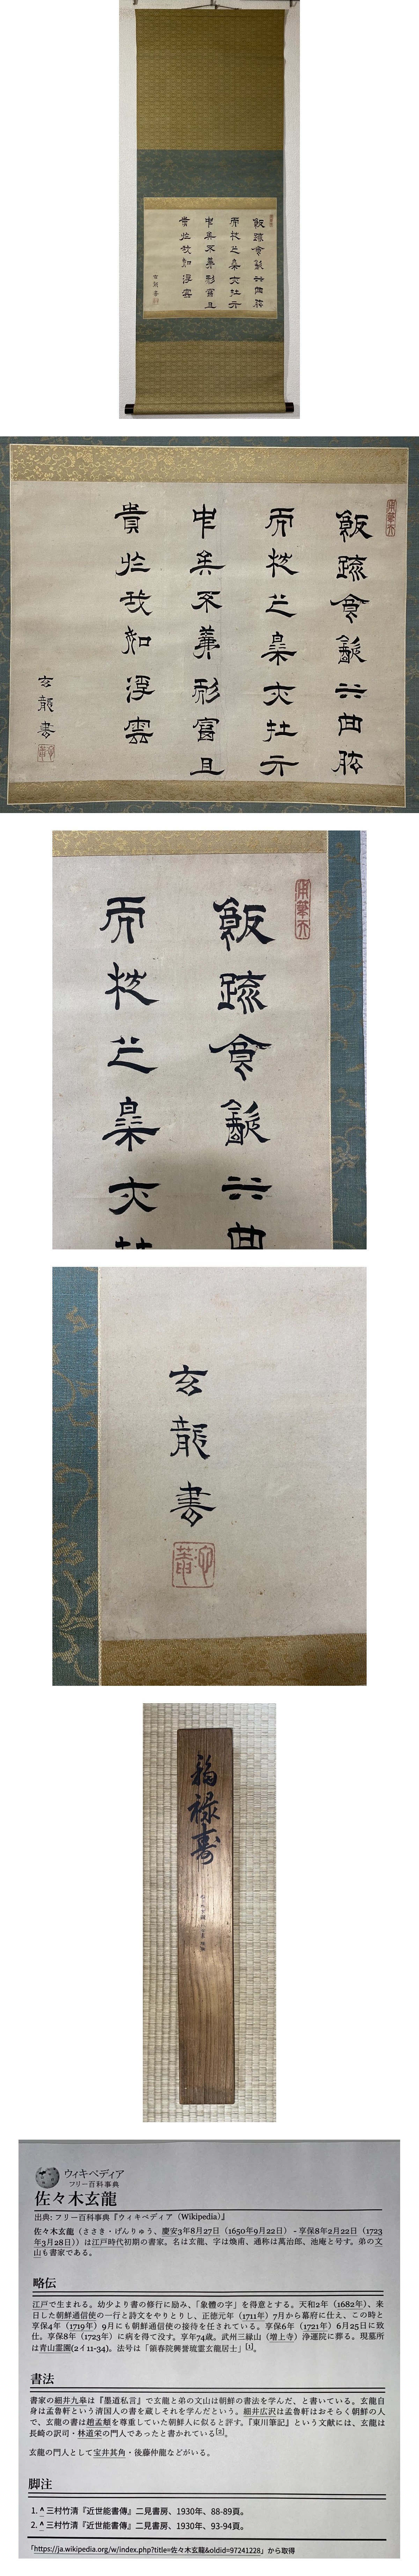 飯疏食飲水曲肱
而枕之樂亦在其
中矣不義而富且
貴於我如浮雲
玄龍書
飯疏食飲水曲肱
而枕之樂亦在其
中矣不義而富且
貴於我如浮雲
玄龍書
飯疏食飲水曲
而枕之樂亦
玄龍書
福禄寿
ウィキペディア
フリー百科事典
佐々木玄龍
出典: フリー百科事典『ウィキペディア（Wikipedia）』
佐々木玄龍（ささき・げんりゅう、慶安3年8月27日（1650年9月22日） - 享保8年2月22日（1723
年3月28日））は江戸時代初期の書家。名は玄龍、字は煥甫、通称は萬治郎、池庵と号す。弟の文
山も書家である。
略伝
江戸で生まれる。幼少より書の修行に励み、「象體の字」を得意とする。天和2年（1682年）、来
日した朝鮮通信使の一行と詩文をやりとりし、正徳元年（1711年）7月から幕府に仕え、この時と
享保4年（1719年）9月にも朝鮮通信使の接待を任されている。享保6年（1721年）6月25日に致
仕。享保8年（1723年）に病を得て没す。享年74歳。武州三縁山（増上寺）浄運院に葬る。現墓所
は青山霊園(2イ11-34)。法号は「領春院興誉琉霊玄龍居士」[1]。
書法
書家の細井九皐は『墨道私言』で玄龍と弟の文山は朝鮮の書法を学んだ、と書いている。玄龍自
身は孟魯軒という清国人の書を蔵しそれを学んだという。細井広沢は孟魯軒はおそらく朝鮮の人
で、玄龍の書は趙孟頫を尊重していた朝鮮人に似ると評す。『東川筆記』という文献には、玄龍は
長崎の訳司・林道栄の門人であったと書かれている[2]。
玄龍の門人として宝井其角・後藤仲龍などがいる。
脚注
1. ^ 三村竹清『近世能書傳』二見書房、1930年、88-89頁。
2. ^ 三村竹清『近世能書傳』二見書房、1930年、93-94頁。
「https://ja.wikipedia.org/w/index.php?title=佐々木玄龍&oldid=97241228」から取得